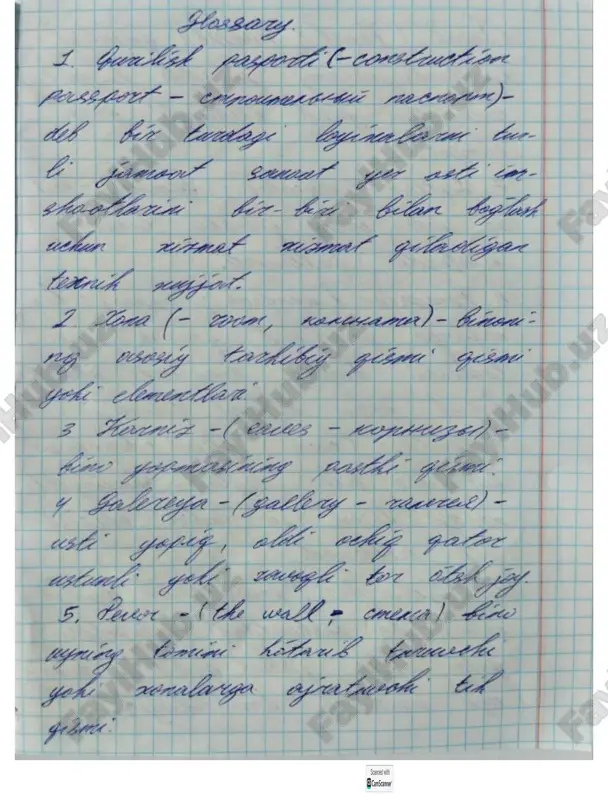 Glossary.
1. Qurilish pasporti (-construction
passport - строительный паспорт)-
deb bir turdagi loyihalarni tur-
li jamoat sanoat yer osti in-
shootlarini bir-biri bilan bog'lash
uchun xizmat xizmat qiladigan
texnik xujjat.
2 Xona (- room, комната) - binoni-
ng asosiy tarkibiy qismi qismi
yoki elementlari
3 Karniz - (eaves - карнизы) -
bino yopmasining pastki qismi.
4 Galereya - (gallery - галерея) -
usti yopiq, oldi ochiq qator
ustunli yoki ravoqli tor o'tish joy.
5. Devor - (the wall - стена) bino
uyning tomini ko'tarib turuvchi
yoki xonalarga ajratuvchi tik
qismi.
FaylHub.uz
Scanned with
CamScanner